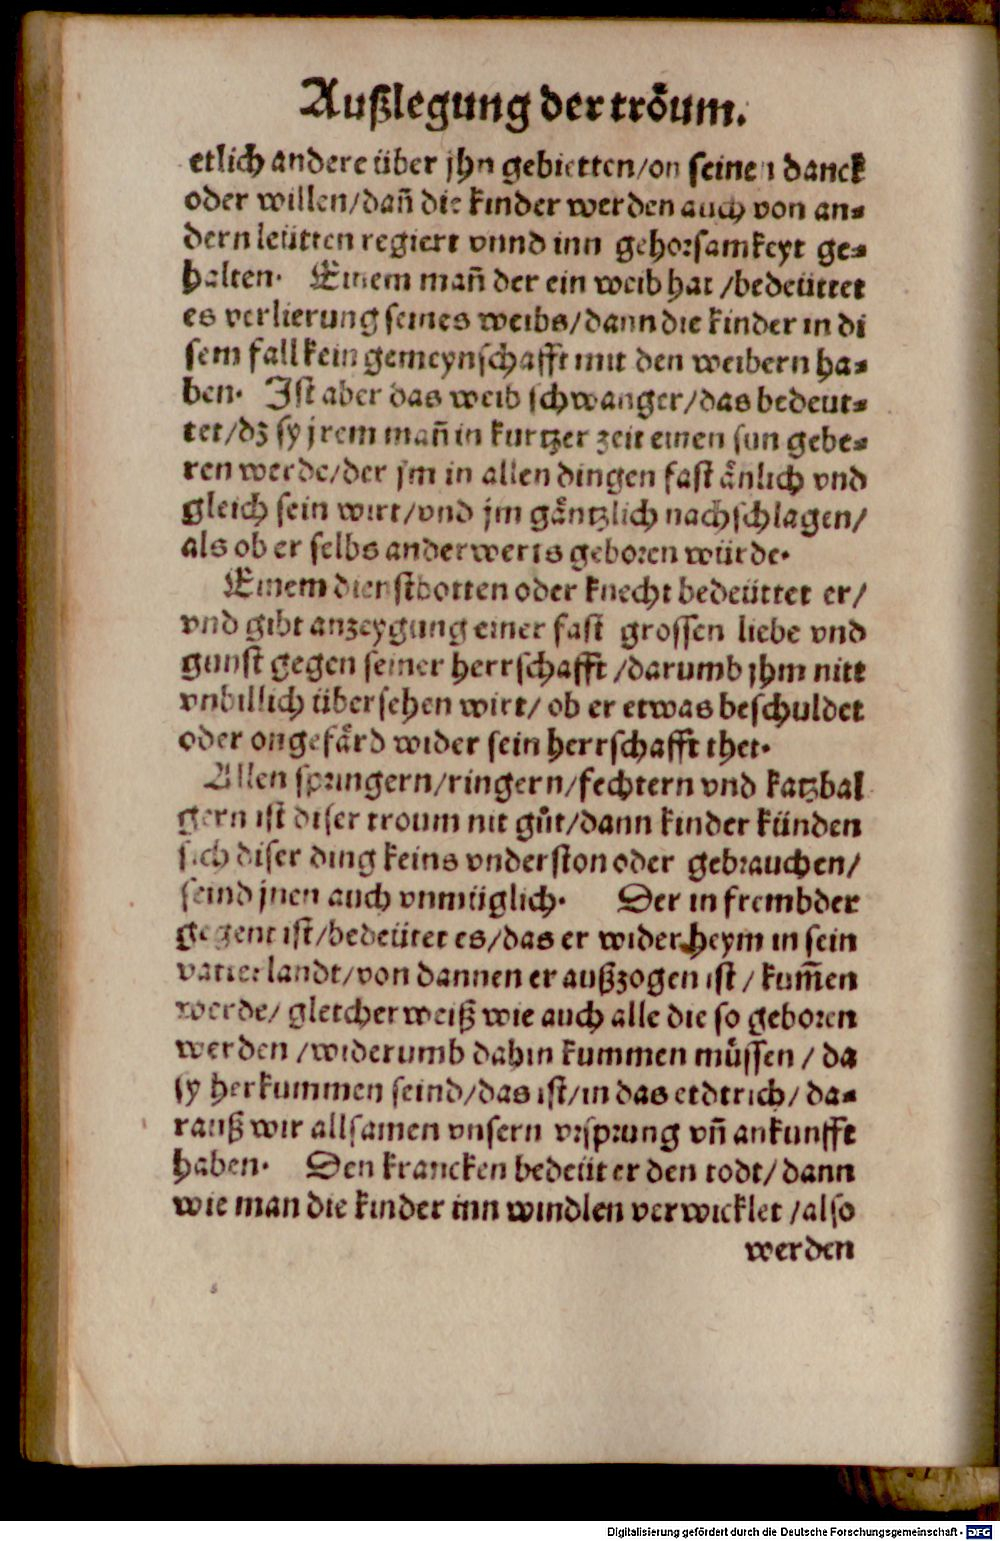 Außlegung der troͤum.
etlich andere über jhn gebietten/on seinen danck
oder willen/dañ die kinder werden auch von an⸗
dern leütten regiert vnnd inn gehorsamkeyt ge⸗
halten. Einem mañ der ein weib hat /bedeüttet
es verlierung seines weibs/dann die kinder in di
sem fall kein gemeynschafft mit den weibern ha⸗
ben. Ist aber das weib schwanger/das bedeut⸗
tet/dz sy jrem mañ in kurtzer zeit einen sun gebe⸗
ren werde/der jm in allen dingen fast aͤnlich vnd
gleich sein wirt/vnd jm gaͤntzlich nachschlagen/
als ob er selbs anderwerts geboren würde.
Einem dienstbotten oder knecht bedeüttet er/
vnd gibt anzeygung einer fast grossen liebe vnd
gunst gegen seiner herrschafft /darumb jhm nitt
vnbillich übersehen wirt/ ob er etwas beschuldet
oder ongefaͤrd wider sein herrschafft thet.
Allen springern/ringern/fechtern vnd katzbal
gern ist diser troum nit guͤt/dann kinder künden
sich diser ding keins vnderston oder gebrauchen/
seind jnen auch vnmüglich. Der in frembder
gegent ist/bedeütet es/das er wider heym in sein
vatterlandt/von dannen er außzogen ist / kum̃en
werde/ gleicher weiß wie auch alle die so geboren
werden /widerumb dahin kummen muͤssen / da
sy herkummen seind/das ist/in das erdtrich/ da⸗
rauß wir allsamen vnsern vrsprung vñ ankunfft
haben. Den krancken bedeüt er den todt/ dann
wie man die kinder inn windlen verwicklet /also
werden
Digitalisierung gefördert durch die Deutsche Forschungsgemeinschaft - DFG